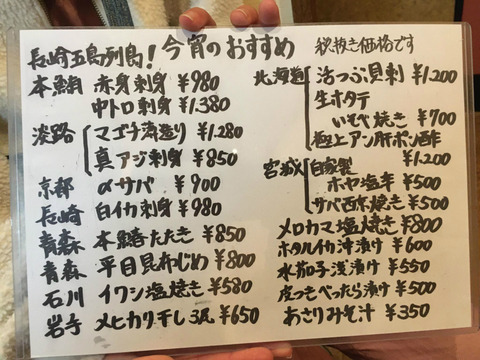 長崎五島列島! 今宵のおすすめ 税抜き価格です
本鮪 赤身刺身 ¥980
中トロ刺身 ¥1,380
淡路 マゴチ薄造り ¥1,280
真アジ刺身 ¥850
京都 〆サバ ¥900
長崎 白イカ刺身 ¥980
青森 本鮪たたき ¥850
青森 平目昆布じめ ¥800
石川 イワシ塩焼き ¥580
岩手 メヒカリ干し3尾 ¥650
北海道 活つぶ貝刺 ¥1,200
生ホタテ
いそべ焼き ¥700
極上アン肝ポン酢
¥1,200
宮城 自家製
ホヤ塩辛 ¥500
サバ西京焼き ¥500
メロカマ塩焼き ¥800
ホタルイカ沖漬け ¥600
水茄子浅漬け ¥550
皮つきべったら漬け ¥500
あさりみそ汁 ¥350